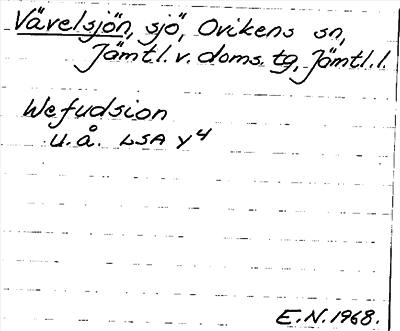 Vävelsjön, sjö, Ovikens sn,
Jämtl. v. doms. tg, Jämtl. l.
Wefudsion
u.å. LSA Y4
E.N. 1968.